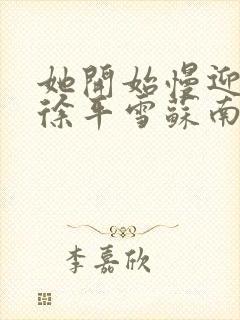 她開始慢迎
徐平雪蘇南
李嘉欣